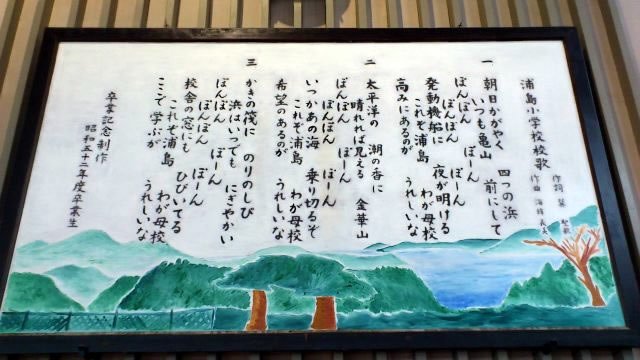 浦島小学校校歌
作詞
作曲
一 朝日かがやく 四つの浜
いつも亀山 前にして
ぽんぽん ぽーん
ぽんぽん ぽーん
発動機船に 夜が明ける
これぞ浦島 わが母校
高みにあるのが うれしいな
二 太平洋の 潮の香に
晴れれば見える 金華山
ぽんぽん ぽーん
ぽんぽん ぽーん
いつかあの海 乗り切るぞ
これぞ浦島 わが母校
希望のあるのが うれしいな
三 かきの筏に のりのしび
浜はいつでも にぎやかい
ぽんぽん ぽーん
ぽんぽん ぽーん
校舎の窓にも ひびいてる
これぞ浦島 わが母校
ここで学ぶが うれしいな
卒業記念制作
昭和五十二年度卒業生